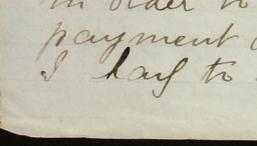 in order to
payment
I hay to